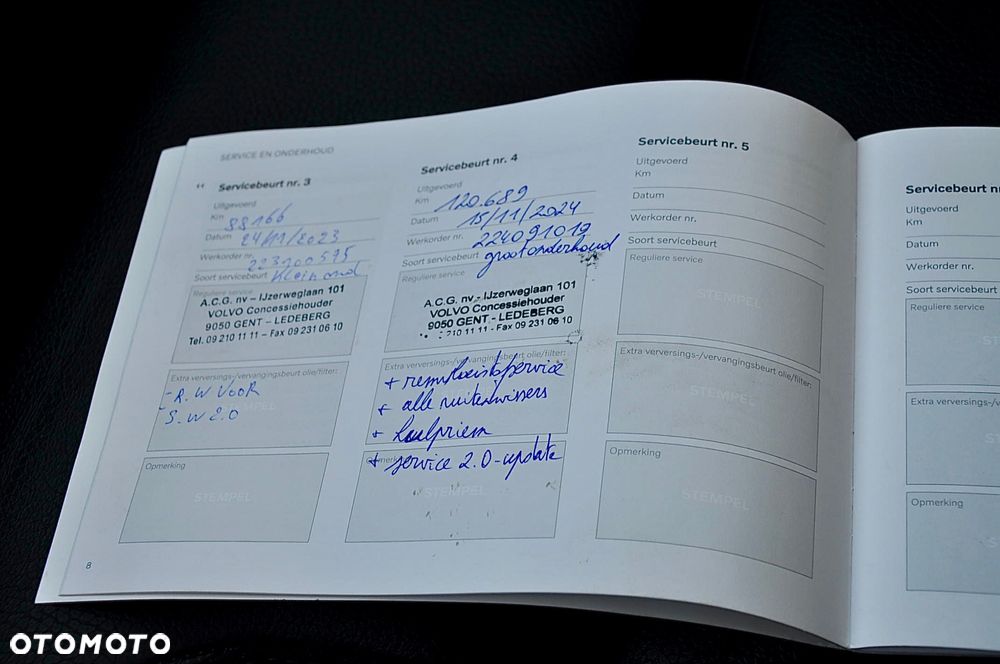 SERVICE EN ONDERHOUD
Servicebeurt nr. 3
Uitgevoerd
Km 88166
Datum 24/11/2023
Werkorder nr. 223100575
Soort servicebeurt Klein ond
Reguliere service
A.C.G. nv – IJzerweglaan 101
VOLVO Concessiehouder
9050 GENT - LEDEBERG
Tel. 09 210 11 11 – Fax 09 231 06 10
Extra verversings-/vervangingsbeurt olie/filter:
- R.W VOOR
- S.W 2.0
Opmerking
STEMPEL
8
Servicebeurt nr. 4
Uitgevoerd
Km 120.689
Datum 15/11/2024
Werkorder nr. 224091019
Soort servicebeurt groot onderhoud
Reguliere service
A.C.G. nv - IJzerweglaan 101
VOLVO Concessiehouder
9050 GENT - LEDEBERG
210 11 11 - Fax 09 231 06 10
Extra verversings-/vervangingsbeurt olie/filter:
+ remvloeistofservice
+ alle ruitenwissers
+ hulpriem
Opmerking
+ service 2.0-update
STEMPEL
Servicebeurt nr. 5
Uitgevoerd
Km
Datum
Werkorder nr.
Soort servicebeurt
Reguliere service
STEMPEL
Extra verversings-/vervangingsbeurt olie/filter:
STEMPEL
Opmerking
STEMPEL
Servicebeurt
Uitgevoerd
Km
Datum
Werkorder nr.
Soort servicebeurt
Reguliere service
Extra verversings-/
Opmerking
OTOMOTO